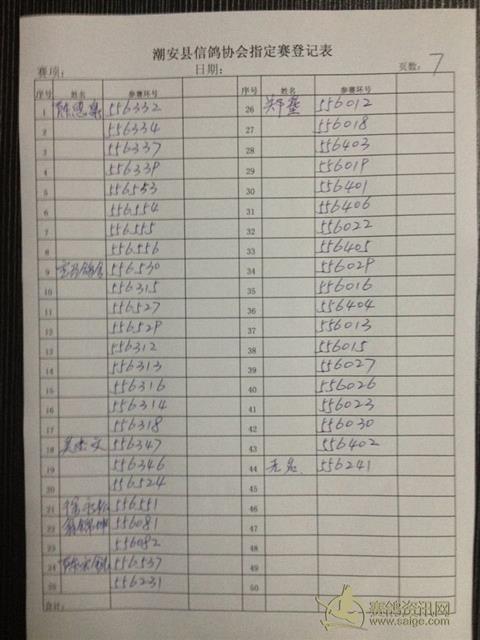 潮安县信鸽协会指定赛登记表
赛项： 日期： 页数：7
序号 姓名 参赛环号 序号 姓名 参赛环号
1 556332 26 郑蛮 556012
2 556334 27 556018
3 556337 28 556403
4 556339 29 556019
5 556553 30 556401
6 556554 31 556406
7 556555 32 556022
8 556556 33 556405
9 556530 34 556029
10 556315 35 556016
11 556527 36 556404
12 556529 37 556013
13 556312 38 556015
14 556313 39 556027
15 556316 40 556026
16 556314 41 556023
17 556318 42 556030
18 556347 43 556402
19 556346 44 无名 556241
20 556524 45
21 556551 46
22 556081 47
23 556082 48
24 556537 49
25 556231 50
合计：
赛鸽资讯网
www.saige.com